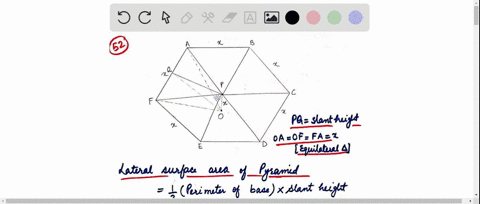 52
A x B
x
Q
x
P
F x C
O
x
x
E D
PQ = slant height
OA = OF = FA = x
[Equilateral Δ]
Lateral surface area of Pyramid
= 1/2 (Perimeter of base) × slant height